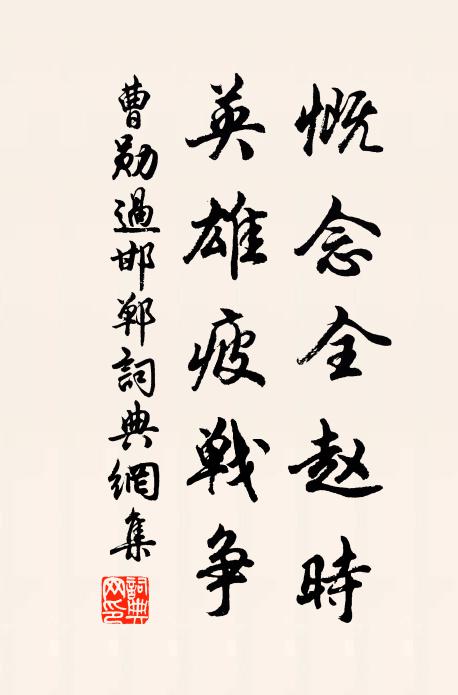 慨念全赵時
英雄疲戰争
曹勛過邯鄲詞典網集
詞典網印